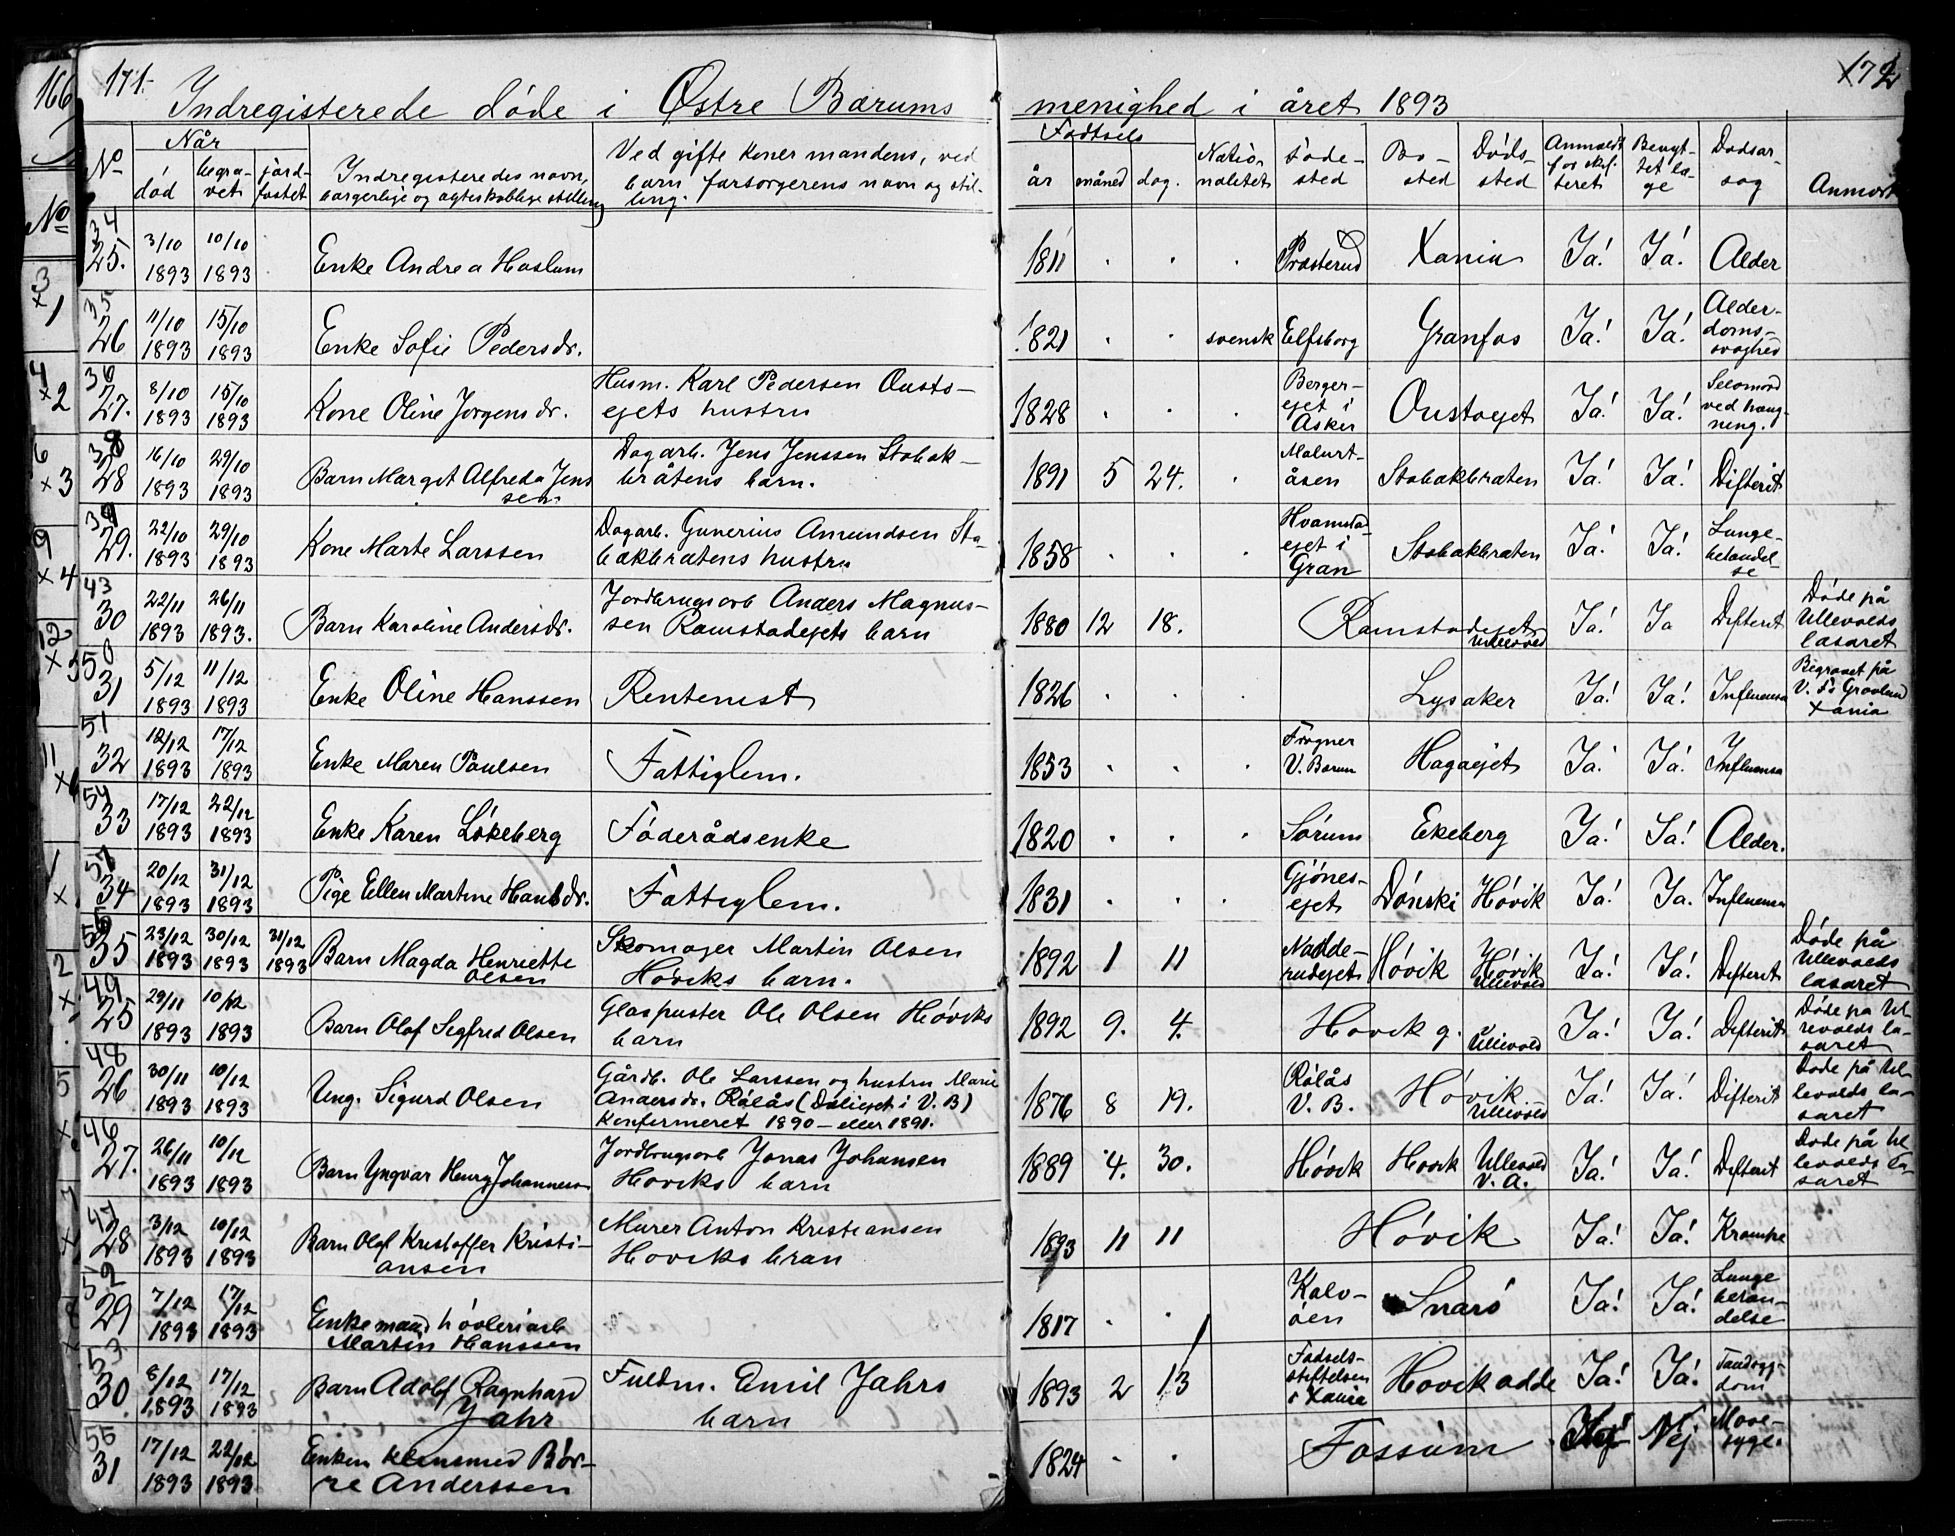 166 171. Indregisterede døde i Østre Bærums menighed i året 1893 172
No Når død begravet jordfæstet Indregisteredes navn, borgerlige og ægteskablige stilling Ved gifte koner mandens, ved barn forsørgerens navn og stilling. Fødsels år måned dag. Nationalitet Fødested Bosted Dødssted Anmeldt for skifteret Benyttet læge Dødsårsag Anmærk
34 25. 3/10 1893 10/10 1893 Enke Andrea Haslum 1811 . . . Præsterud Xania Ja! Ja! Alder
35 26 11/10 1893 15/10 1893 Enke Sofie Pedersdr. 1821 . . svensk Elfsborg Granfos Ja! Ja! Alderdomssvaghed
36 27. 8/10 1893 15/10 1893 Kone Oline Jørgensdr. Husm. Karl Pedersen Oustøejets hustru 1828 . . . Bergerejet i Asker Oustøejet Ja! Ja! Selvmord ved hængning.
38 28 16/10 1893 29/10 1893 Barn Margit Alfreda Jenssen Dagarb. Jens Jenssen Stabækbråtens barn. 1891 5 24. . åsen Stabækbraten Ja! Ja! Difterit
39 29. 22/10 1893 29/10 1893 Kone Marte Larssen Dagarb. Gunerius Amundsen Stabækbratens hustru 1858 . . . ejet i Gran Stabækbraten Ja! Ja! Lungebetændelse
43 30 22/11 1893 26/11 1893. Barn Karoline Andersdr. Jordbrugsarb Anders Magnussen Ramstadejets barn 1880 12 18. Ramstadejet Ullevold Ja! Ja Difterit Døde på Ullevolds lasaret
50 31 5/12 1893 11/12 1893 Enke Oline Hanssen Rentenist 1826 . . . Lysaker Ja! Ja! Influensa Begravet på V. Fs Gravlund Xania
51 32 12/12 1893 17/12 1893 Enke Maren Paulsen Fattiglem. 1853 . . . Frogner V. Bærum Hagaejet Ja! Ja! Influensa
54 33 17/12 1893 22/12 1893 Enke Karen Løkeberg Føderådsenke 1820 . . . Sørum Ekeberg Ja! Ja! Alder.
57 34 20/12 1893 31/12 1893 Pige Ellen Martine Hansdr. Fattiglem. 1831 . . . Gjønesejet Dønski Høvik Ja! Ja. Influensa
56 35 23/12 1893 30/12 1893 31/12 1893 Barn Magda Henriette Olsen Skomager Martin Olsen Høviks barn. 1892 1 11 Nadderudejet Høvik Høvik Ullevold Ja! Ja! Difterit Døde på Ullevolds lasaret
49 25 29/11 1893 10/12 1893 Barn Olaf Sigfred Olsen Glaspuster Ole Olsen Høviks barn 1892 9. 4. Høvik g. Ullevold Ja! Ja! Difterit Døde på Ullevolds lasaret
48 26 30/11 1893 10/12 1893 Ung. Sigurd Olsen Gårdb. Ole Larssen og hustru Marie Andersdr. Rølås (Døliejet i V. B) Konfirmeret 1890 – eller 1891. 1876 8 19. Rølås V. B. Høvik Ullevold Ja! Ja! Difterit Døde på Ullevolds lasaret
46 27. 26/11 1893 10/12 1893 Barn Yngvar Henry Johannesen Jordbrugsarb Jonas Johansen Høviks barn 1889 4. 30. Høvik Høvik Ullevold V. A. Ja! Ja! Difterit Døde på Ullevolds lasaret
47 28 3/12 1893 10/12 1893 Barn Olaf Kristoffer Kristiansen Murer Anton Kristiansen Høviks bran 1893 11 11 Høvik Ja! Ja! Krampe
52 29 7/12 1893 17/12 1893 Enkemand høvleriarb Martin Hanssen 1817 . . Kalvøen Snarø Ja! Ja! Lungebetændelse
53 30. 8/12 1893 17/12 1893 Barn Adolf Ragnhard Jahr Fuldm. Emil Jahrs barn 1893 2 13 Fødselsstiftelsen i Xania Høvikodde Ja! Ja! dom
55 31 17/12 1893 22/12 1893 Enkem klensmed Børre Anderssen 1824 . . Fossum Nej Nej Mavesyge.